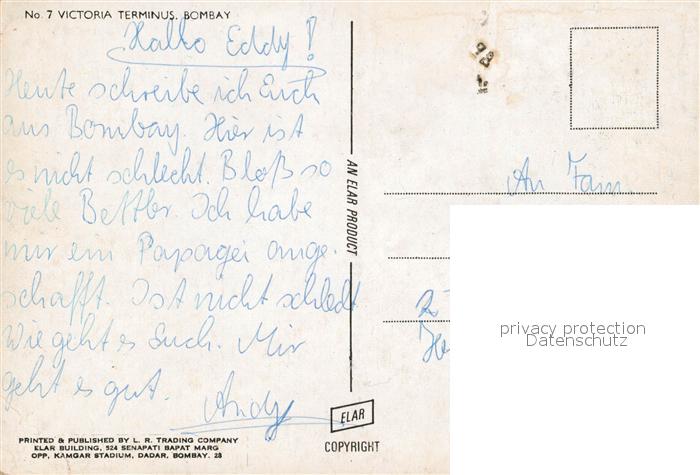 No. 7 VICTORIA TERMINUS, BOMBAY
Hallo Eddy!
Heute schreibe ich Euch
aus Bombay. Hier ist
es nicht schlecht. Bloß so
viele Bettler. Ich habe
mir ein Papagei ange-
schafft. Ist nicht schlecht
Wie geht es Euch. Mir
geht es gut.
Andy
PRINTED & PUBLISHED BY L. R. TRADING COMPANY
ELAR BUILDING, 524 SENAPATI BAPAT MARG
OPP. KAMGAR STADIUM, DADAR, BOMBAY. 28
AN ELAR PRODUCT
ELAR
COPYRIGHT
An Fam.
privacy protection
Datenschutz